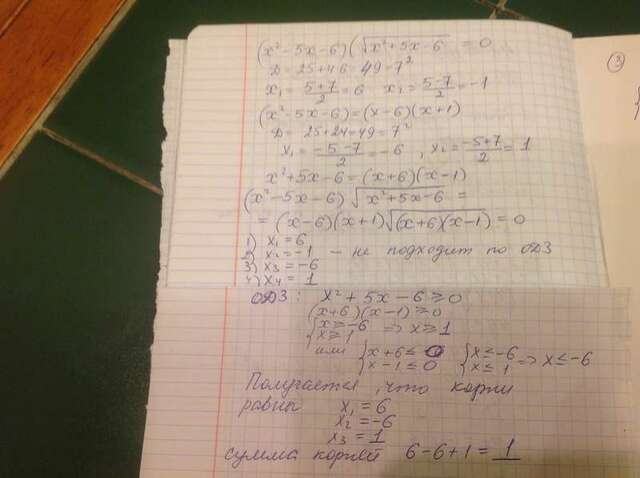 (x² - 5x - 6)(√x² + 5x - 6 = 0
D = 25 + 46 = 49 = 7²
x₁ = (5+7)/2 = 6   x₁ = (5-7)/2 = -1
(x² - 5x - 6) = (x - 6)(x + 1)
D = 25 + 24 = 49 = 7²
x₁ = (-5-7)/2 = -6 , x₂ = (-5+7)/2 = 1
x² + 5x - 6 = (x + 6)(x - 1)
(x² - 5x - 6) √x² + 5x - 6 =
= (x - 6)(x + 1)√(x + 6)(x - 1) = 0
1) x₁ = 6
2) x₂ = -1 – не подходит по ОДЗ
3) x₃ = -6
4) x₄ = 1
ОДЗ: x² + 5x - 6 ≥ 0
(x + 6)(x - 1) ≥ 0
{ x ≥ -6
x ≥ 1 => x ≥ 1
или { x + 6 ≤ 0   { x ≤ -6
x - 1 ≤ 0   x ≤ 1 => x ≤ -6
Получается, что корни
равны x₁ = 6
x₂ = -6
x₃ = 1
сумма корней 6 - 6 + 1 = 1
3